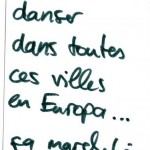 danser
dans toutes
ces villes
en Europa...